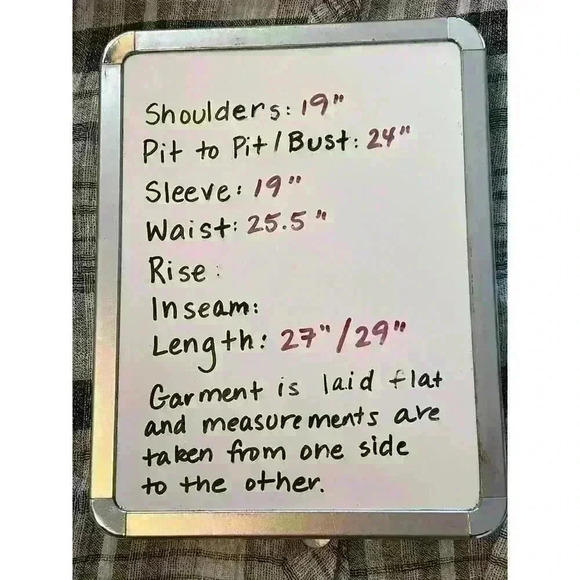 Shoulders: 19"
Pit to Pit/Bust: 24"
Sleeve: 19"
Waist: 25.5"
Rise:
Inseam:
Length: 27"/29"
Garment is laid flat
and measurements are
taken from one side
to the other.